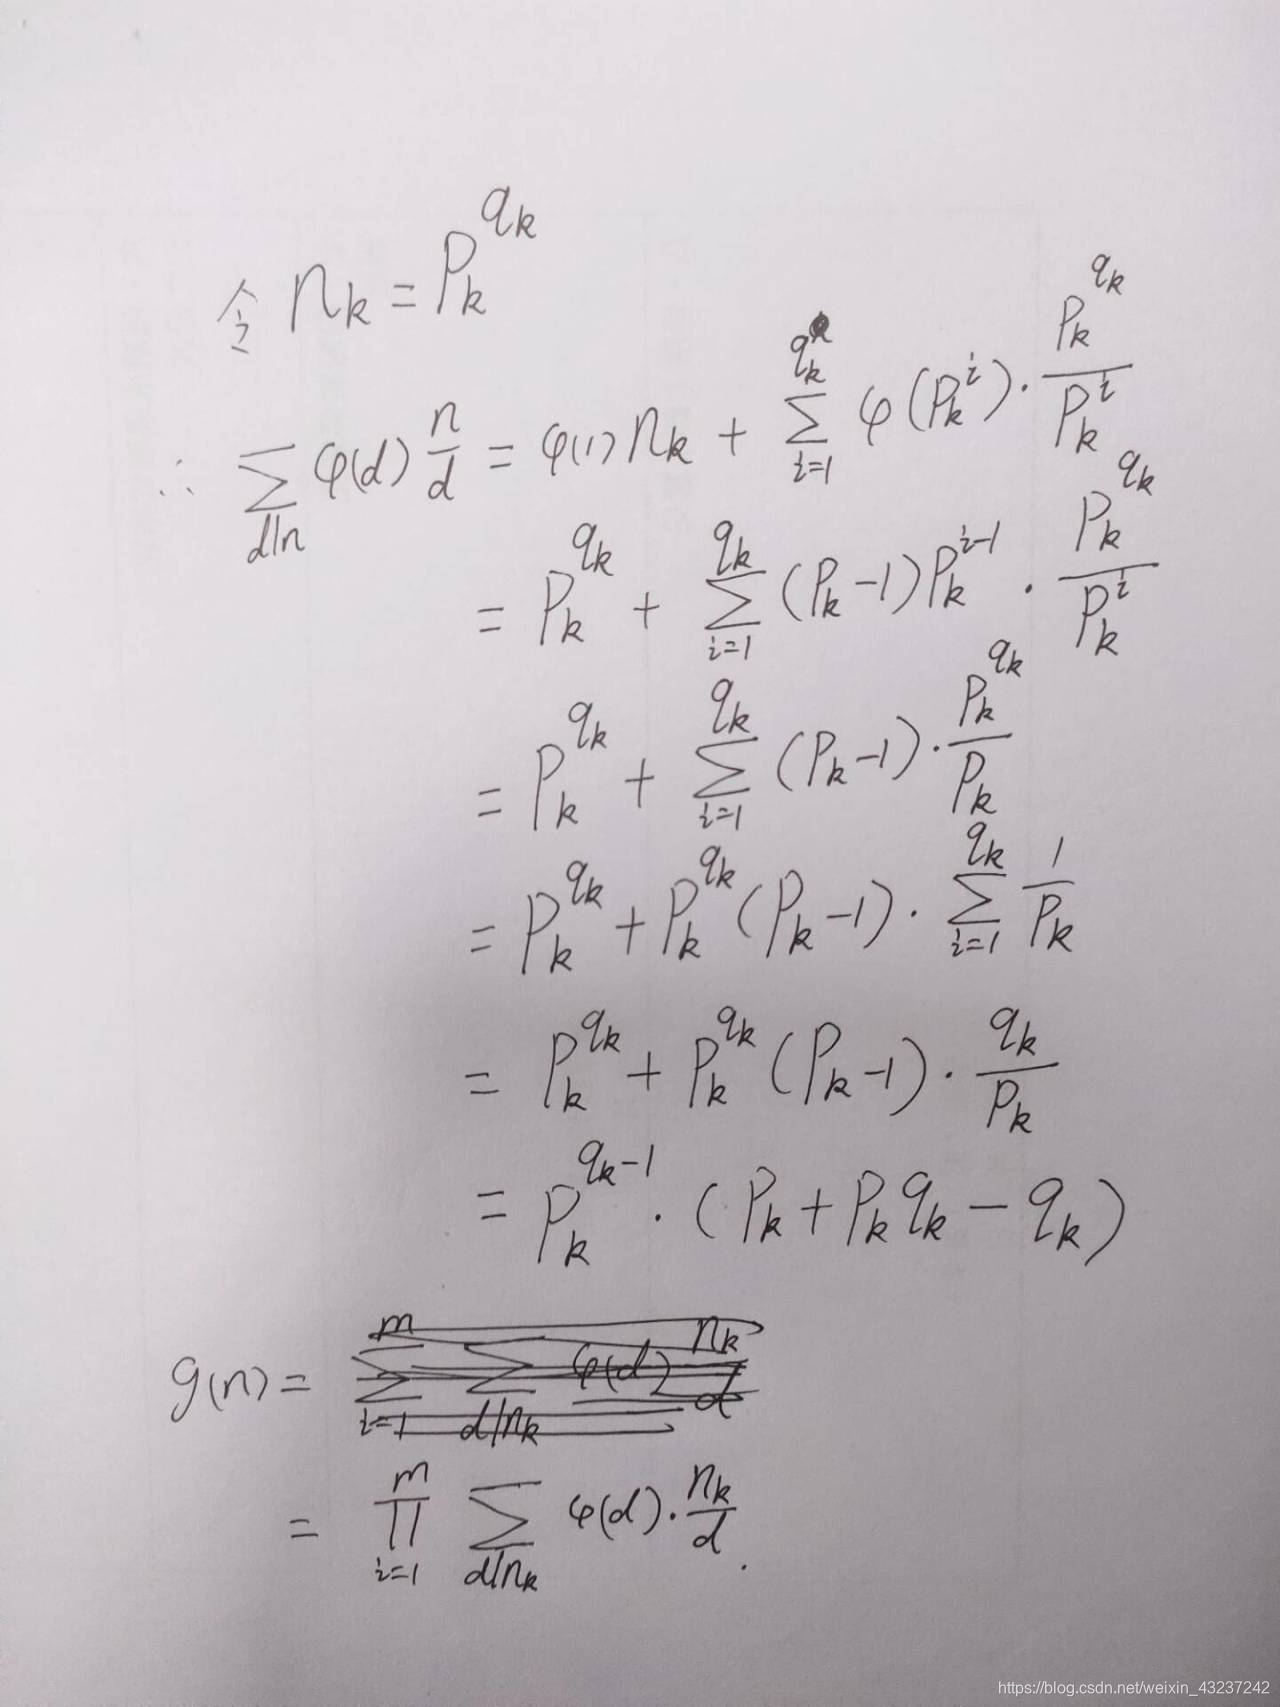 令 n_k = P_k^{q_k}
∴ \sum_{d|n} φ(d) \frac{n}{d} = φ(1) n_k + \sum_{i=1}^{q_k} φ(P_k^i) · \frac{P_k^{q_k}}{P_k^i}
= P_k^{q_k} + \sum_{i=1}^{q_k} (P_k-1) P_k^{i-1} · \frac{P_k^{q_k}}{P_k^i}
= P_k^{q_k} + \sum_{i=1}^{q_k} (P_k-1) · \frac{P_k^{q_k}}{P_k}
= P_k^{q_k} + P_k^{q_k} (P_k-1) · \sum_{i=1}^{q_k} \frac{1}{P_k}
= P_k^{q_k} + P_k^{q_k} (P_k-1) · \frac{q_k}{P_k}
= P_k^{q_k-1} · (P_k + P_k q_k - q_k)
g(n) = \sum_{i=1}^{m} \sum_{d|n_k} φ(d) \frac{n_k}{d}
= \prod_{i=1}^{m} \sum_{d|n_k} φ(d) · \frac{n_k}{d} .
https://blog.csdn.net/weixin_43237242